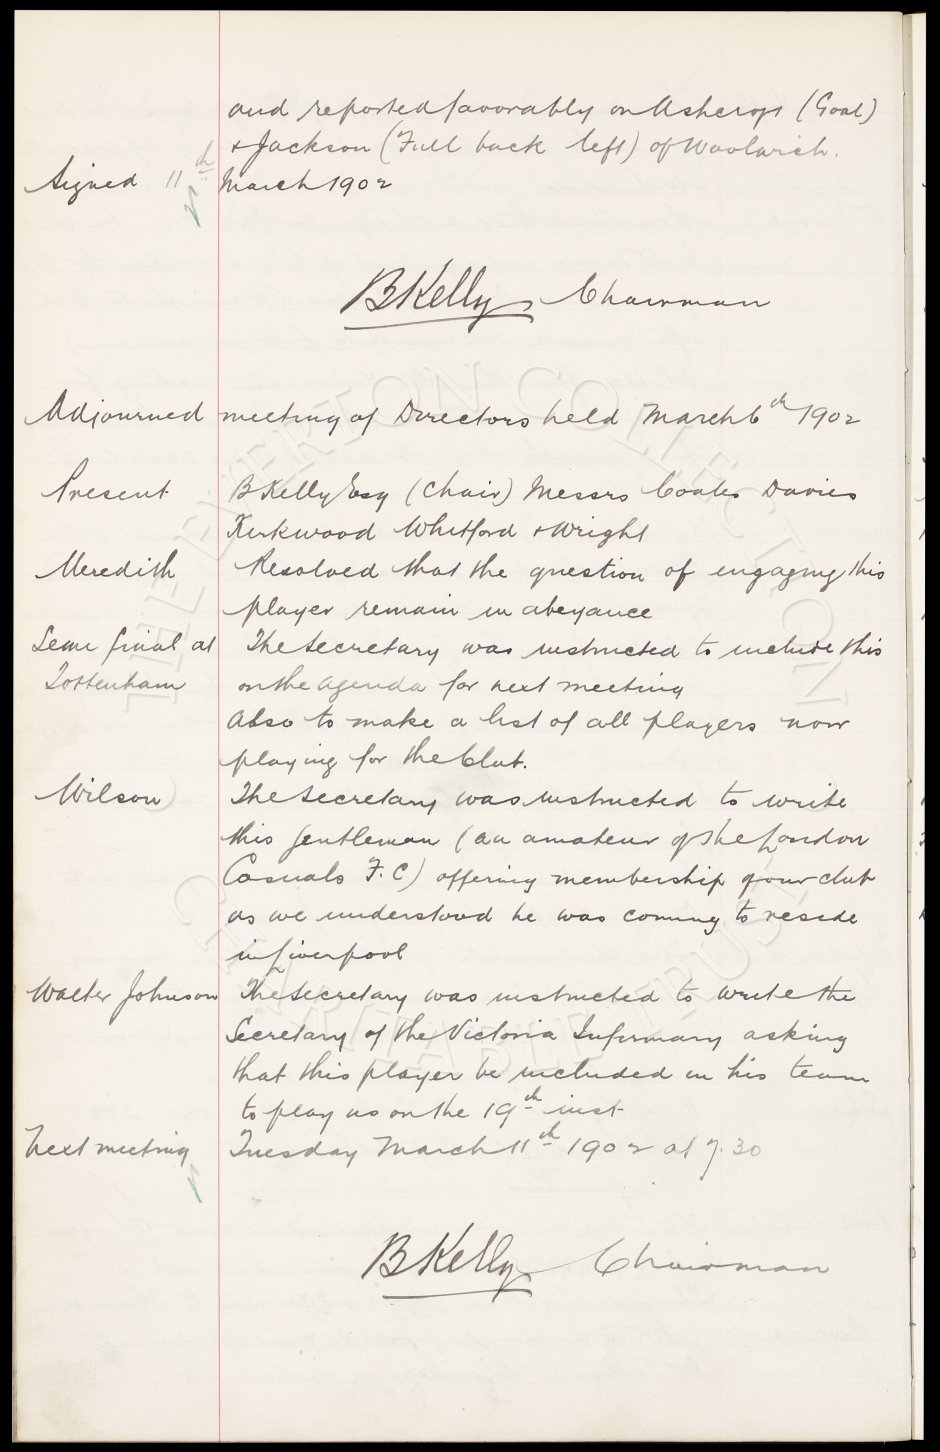 and reported favorably on Ashcroft (Goal)
& Jackson (Full back left) of Woolwich.
Signed 11th March 1902
B Kelly Chairman
Adjourned meeting of Directors held March 6th 1902
Present B Kelly Esq (Chair) Messrs Coates Davies
Kirkwood Whitford & Wright
Meredith Resolved that the question of engaging this
player remain in abeyance
Semi final at The Secretary was instructed to include this
Tottenham on the agenda for next meeting
Also to make a list of all players now
playing for the Club.
Wilson The Secretary was instructed to write
this gentleman (an amateur of the London
Casuals F.C) offering membership of our club
as we understood he was coming to reside
in Liverpool
Walter Johnson The Secretary was instructed to write the
Secretary of the Victoria Infirmary asking
that this player be included in his team
to play us on the 19th inst
Next meeting Tuesday March 11th 1902 at 7.30
B Kelly Chairman
THE EVERTON COLLECTION
CHARITABLE TRUST